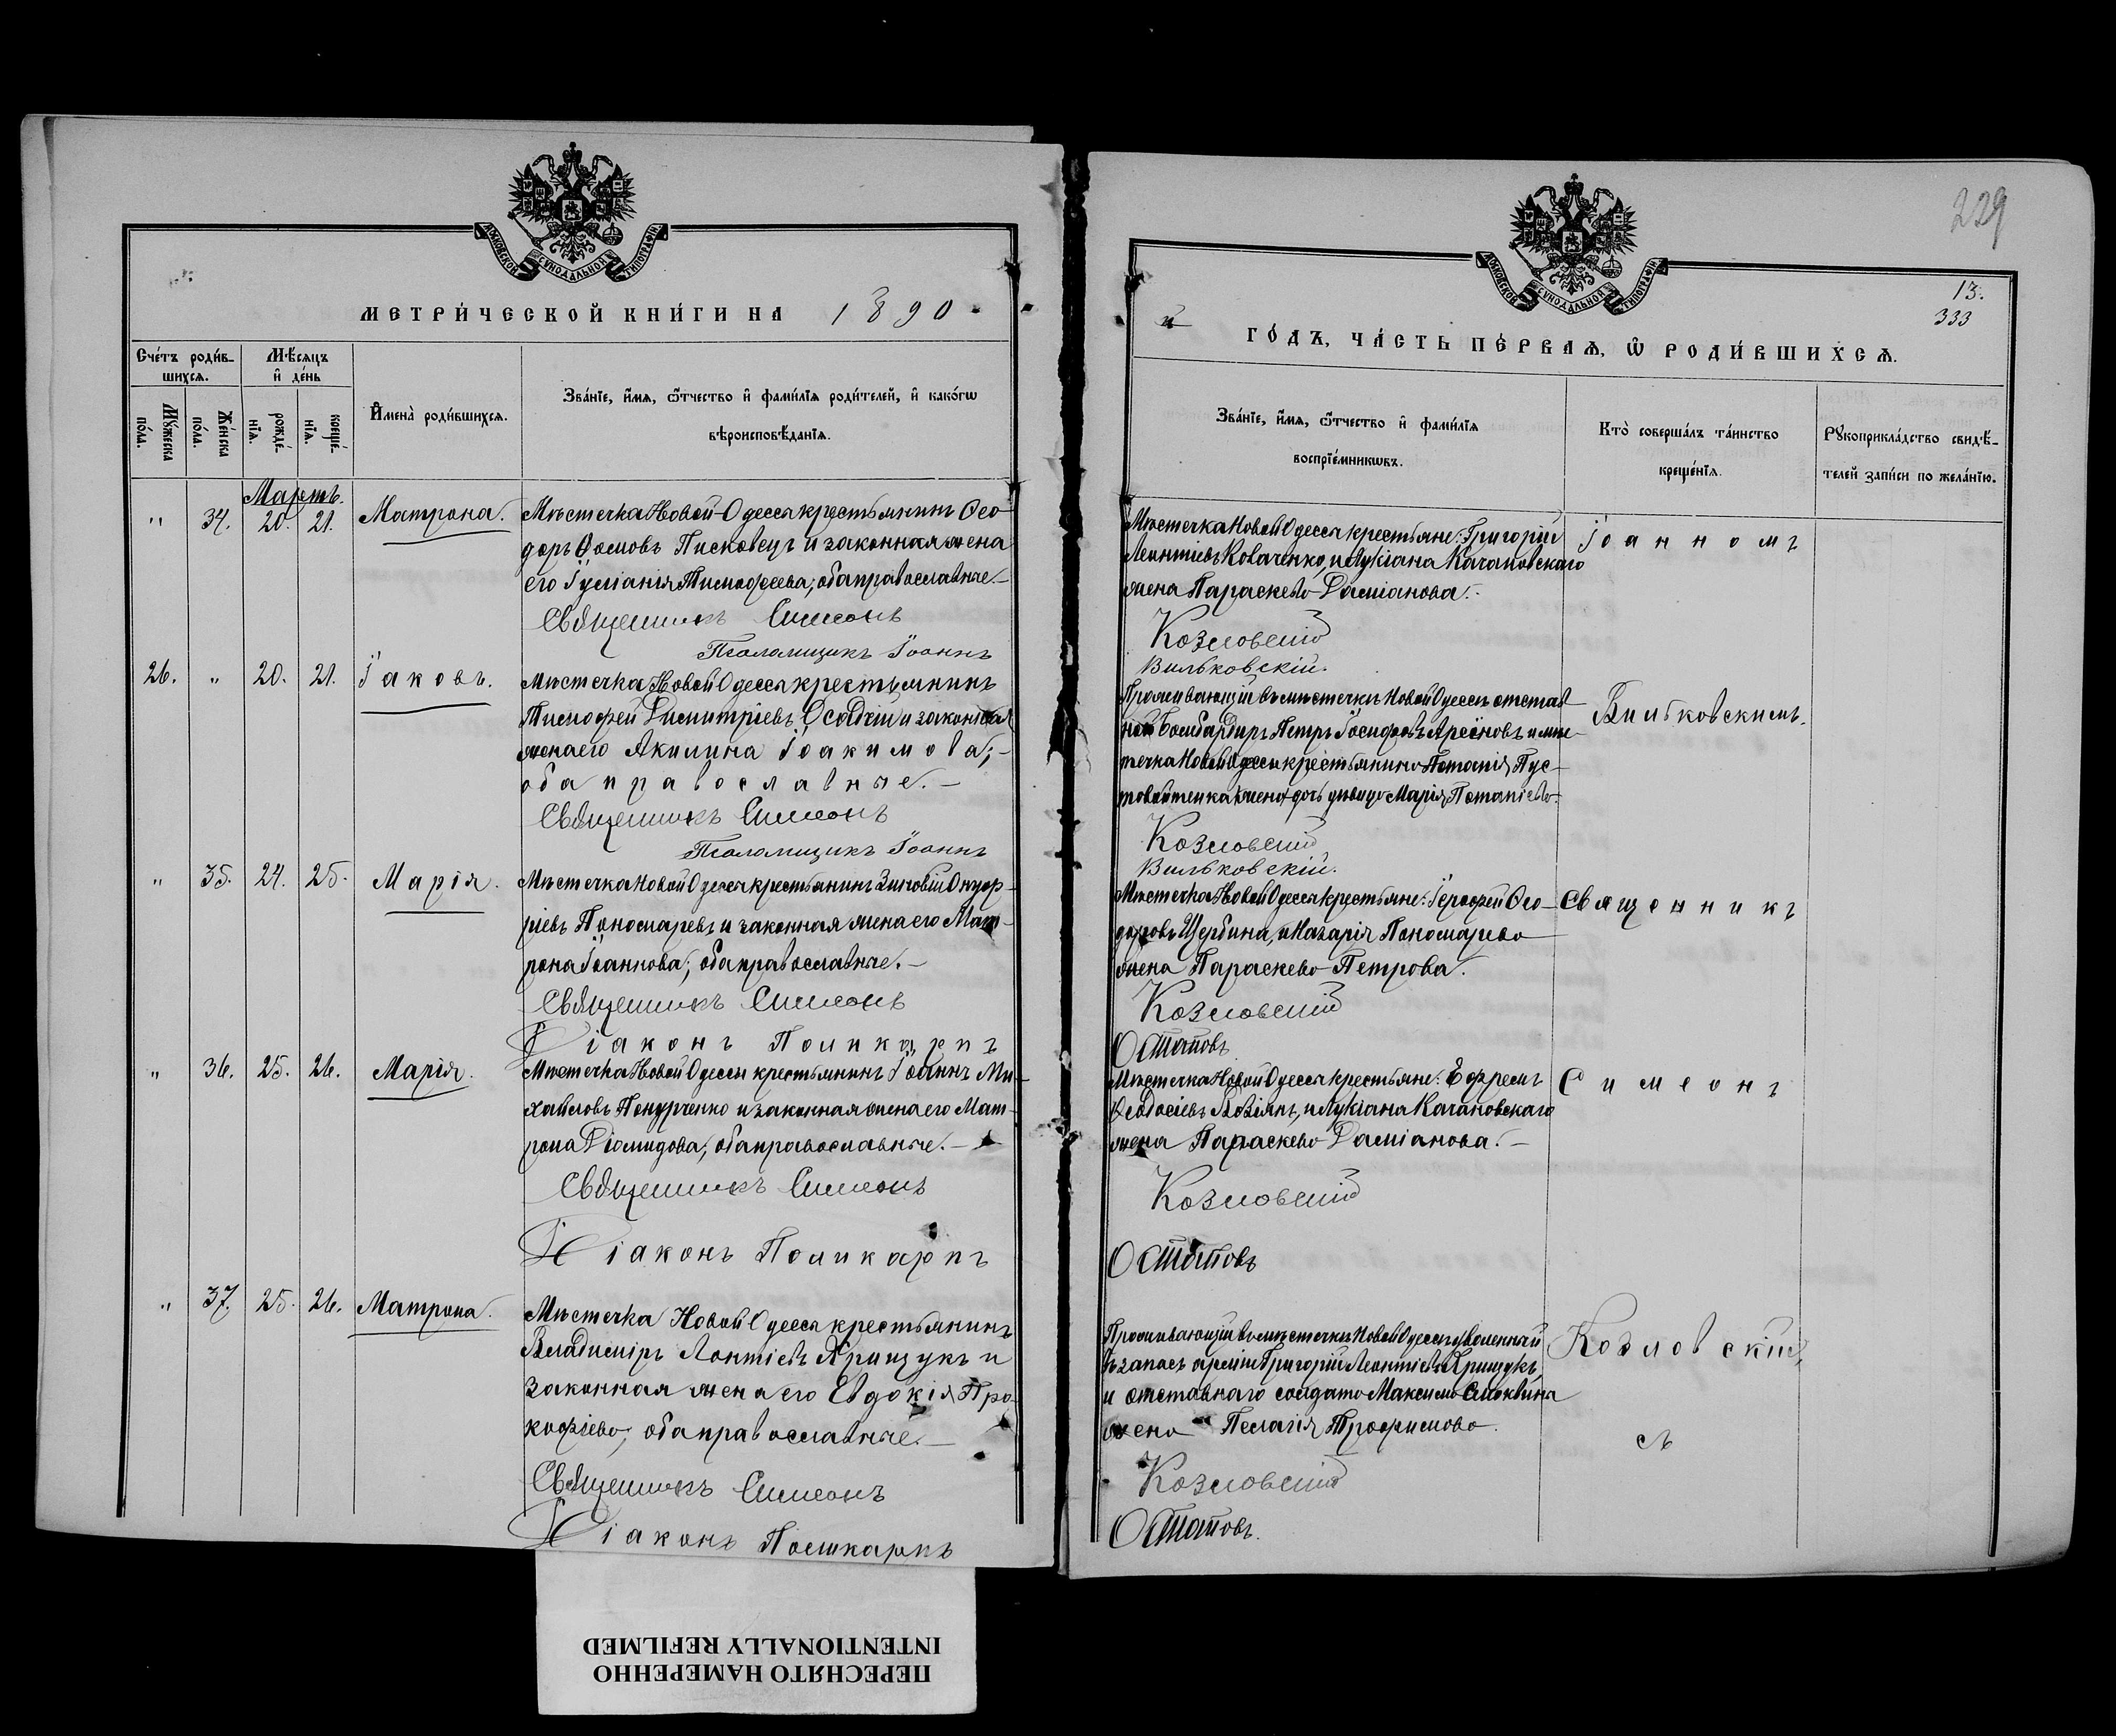 МОСКОВСКОЙ СѴНОДАЛЬНОЙ ТИПОГРАФІИ
МЕТРИ́ЧЕСКОЙ КНИ́ГИ НА 1890
Сче́тъ роди́в-
шихсѧ.
Мѣ́сѧцъ
и҆ де́нь
Мꙋ́жеска
по́ла.
Же́нска
по́ла.
рожде́-
нїѧ.
креще́-
нїѧ.
И҆мена̀ роди́вшихсѧ.
Зва́нїе, и҆́мѧ, ѻ҆́тчество и҆ фами́лїѧ роди́телей, и҆ како́гѡ
вѣроисповѣ́данїѧ.
Мартъ.
" 34. 20. 21. Матрона.
Мѣстечка Новой-Одессы крестьянинъ Ѳео-
доръ Ѳомовъ Писковецъ и законная жена
его Іуліанія Тимофеева; оба православные.–
Священникъ Симеонъ
Псаломщикъ Іоаннъ
26. " 20. 21. Іаковъ.
Мѣстечка Новой Одессы крестьянинъ
Тимофей Димитріевъ Осадчій и законная
жена его Акилина Іоакимова;–
оба православные.–
Священникъ Симеонъ
Псаломщикъ Іоаннъ
" 35. 24. 25. Марія.
Мѣстечка Новой Одессы крестьянинъ Зиновій Онуф-
ріевъ Пономаревъ и законная жена его Мат-
рона Іоаннова; оба православные.–
Священникъ Симеонъ
Діаконъ Поликарпъ
" 36. 25. 26. Марія.
Мѣстечка Новой Одессы крестьянинъ Іоаннъ Ми-
хайловъ и законная жена его Мат-
рона Діомидова; оба православные.–
Священникъ Симеонъ
Діаконъ Поликарпъ
" 37. 25. 26. Матрона.
Мѣстечка Новой Одессы крестьянинъ
Владиміръ Леонтіевъ Грищукъ и
законная жена его Евдокія Про-
кофіева; оба православные.–
Священникъ Симеонъ
Діаконъ Поликарпъ
229
МОСКОВСКОЙ СѴНОДАЛЬНОЙ ТИПОГРАФІИ
13.
333
ГО́ДЪ, ЧА́СТЬ ПЕ́РВАѦ, Ѡ҆ РОДИ́ВШИХСѦ.
Зва́нїе, и҆́мѧ, ѻ҆́тчество и҆ фами́лїѧ
воспрїе́мникѡвъ.
Кто̀ соверша́лъ та́инство
креще́нїѧ.
Рꙋкоприкла́дство свидѣ́-
телей за́писи по жела́нїю.
Мѣстечка Новой Одессы крестьяне: Григорій
Леонтіевъ Коваченко, и Лукіана Качановскаго
жена Параскева Даміанова.
Козловскій
Вильковскій.
Іоанномъ
Проживающій въ мѣстечкѣ Новой Одессѣ отстав-
ной бомбардиръ Петръ Іосифовъ и мѣс-
течка Новой Одессы крестьянина Потапія Пус-
товойтенка дочь дѣвица Марія Потапіева.
Козловскій
Вильковскій.
Вильковскимъ.
Мѣстечка Новой Одессы крестьяне: Іерофей Ѳео-
доровъ Щербина, и Назарія Пономарева
жена Параскева Петрова.
Козловскій
Остаповъ
Священникъ
Мѣстечка Новой Одессы крестьяне: Ефремъ
Ѳеодосіевъ и Лукіана Качановскаго
жена Параскева Даміанова.–
Козловскій
Остаповъ
Симеонъ
Проживающій въ мѣстечкѣ Новой Одессѣ уволенный
въ запасъ арміи Григорій Леонтіевъ Грищукъ,
и отставнаго солдата Максима
жена Пелагія Трофимова.
Козловскій
Остаповъ.
Козловскій,
съ
ПЕРЕСНЯТО НАМЕРЕННО
INTENTIONALLY REFILMED